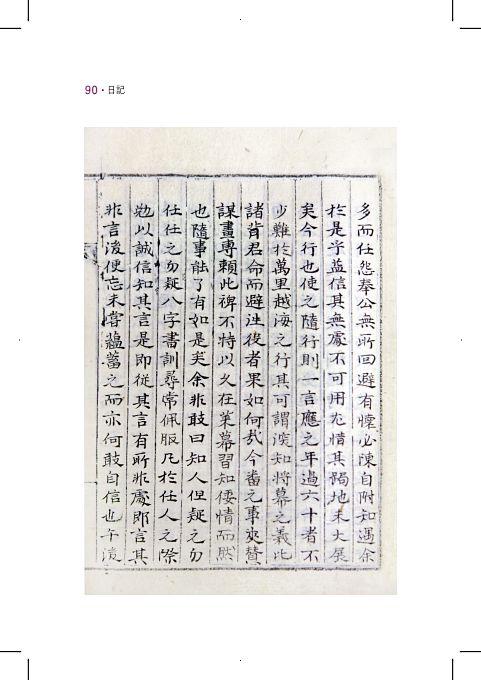 90 · 日記
多而任怨奉公無所回避有懷必陳自附知遇余
於是乎益信其無處不可用尤惜其闊地未大展
矣今行也使之隨行則一言應之年過六十者不
少難於萬里越海之行其可謂深知將幕之義比
諸背君命而避往役者果如何哉今番之事夾贊
謀畫專賴此裨不特以久在萊幕習知倭情而然
也隨事能了有如是矣余非敢曰知人但疑之勿
任任之勿疑八字書訓尋常佩服凡於任人之際
勉以誠信知其言是卽從其言有所非處卽言其
非言後便忘未嘗蘊蓄之而亦何敢自信也午後